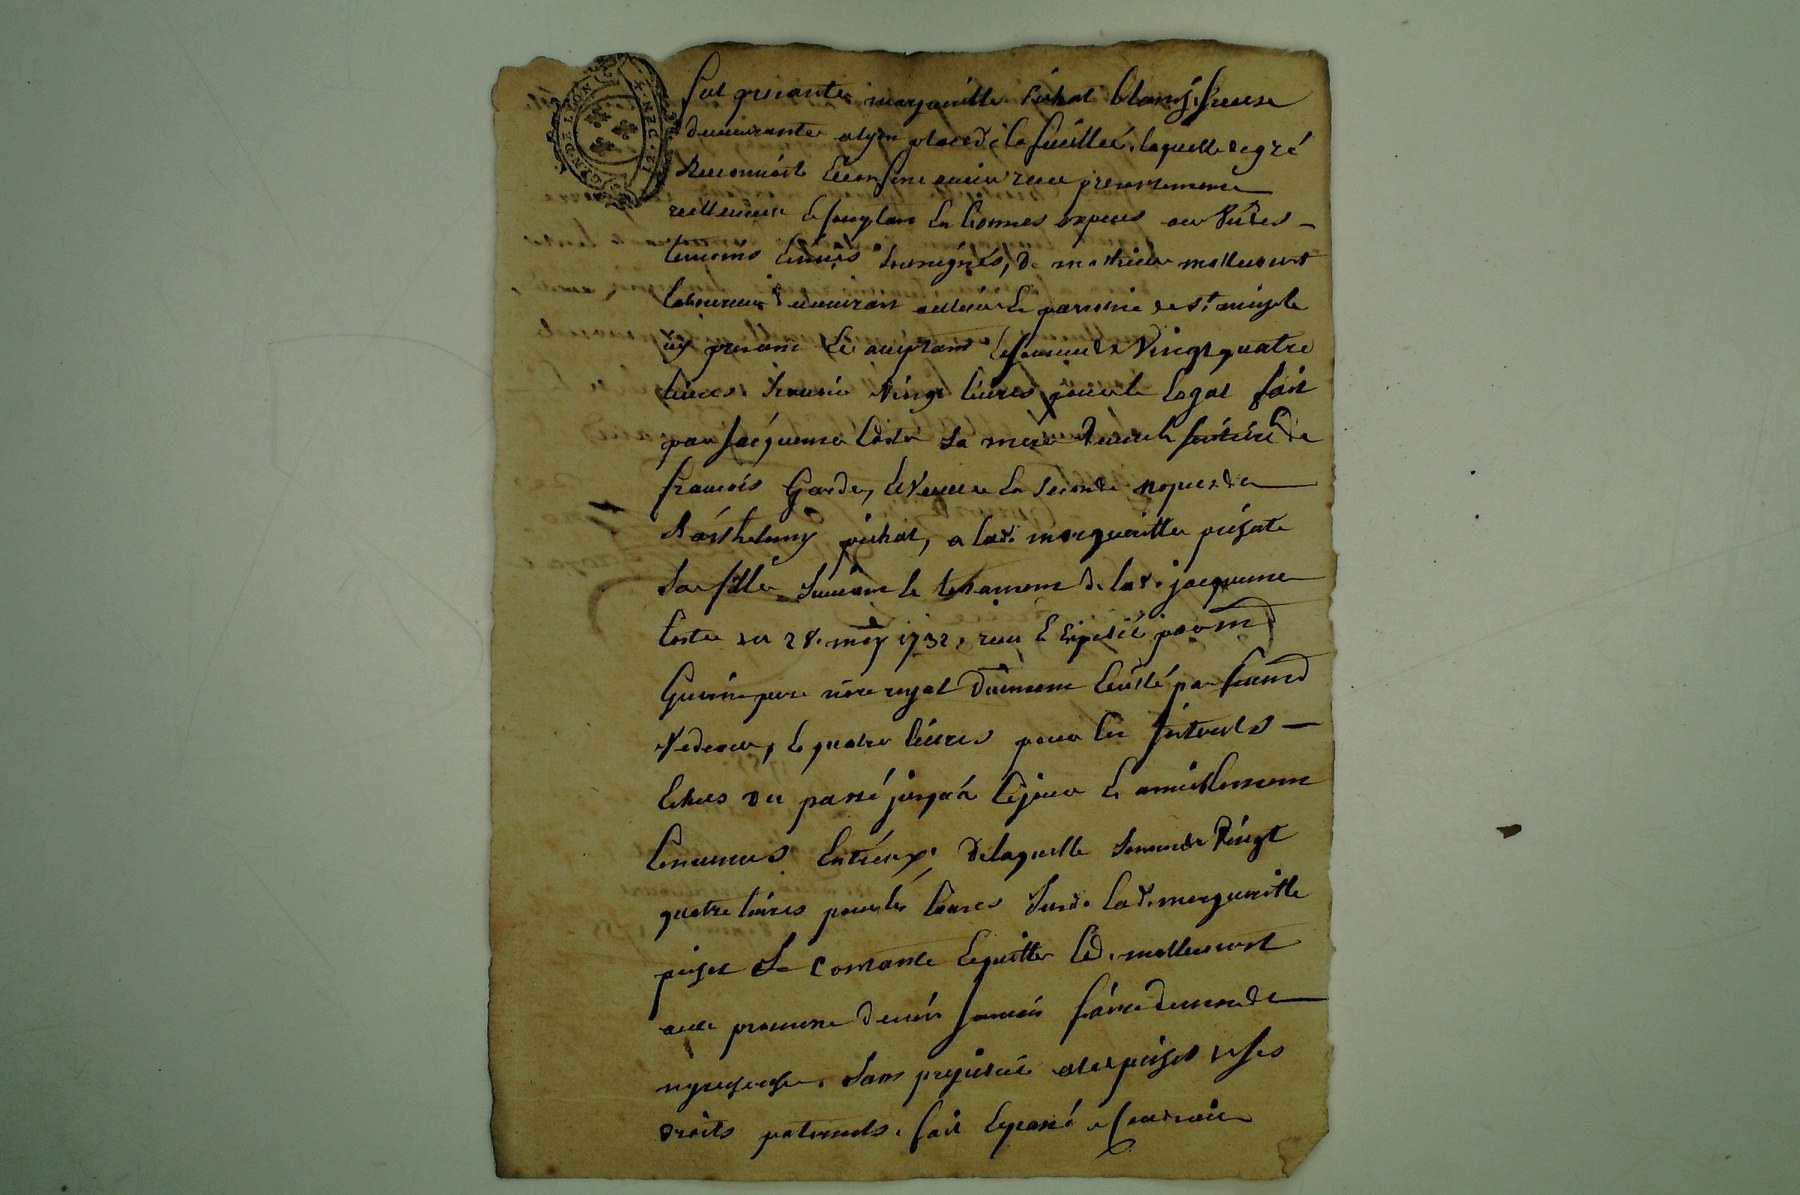 GEN DE LION
fut presante margueritte pichat blanchisseuse
demeurante alyon place de la feuillée, laquelle de gré
Reconnoit et confesse avoir receu presentement
reellement et comptant en bonnes especes au vù des
temoins soussignés, de mathieu mollevart
laboureur demeurant parroisse de st.
icy present et acceptant la somme de vingt quatre
livres, scavoir vingt livres pour le legat fait
par jacqueme coste sa mere de
francois Garde, et veuve en seconde nopces de
Barthelemy pichat, a lad. margueritte pichat
sa fille suivant le testament de lad. jacqueme
coste du 28. may 1732, receu et expedié par me
Guerin pere nore royal duement controlé par
et quatre livres pour les interests
echus du passé jusqua cejour et amiablement
convenus entreux, delaquelle somme de vingt
quatre livres pour les causes susd. lad. margueritte
pichat se contante et quitte led. mollevart
avec promesse den jamais faire demande
ny recherche. sans prejudice alad pichat de ses
droits paternels. fait et passé a